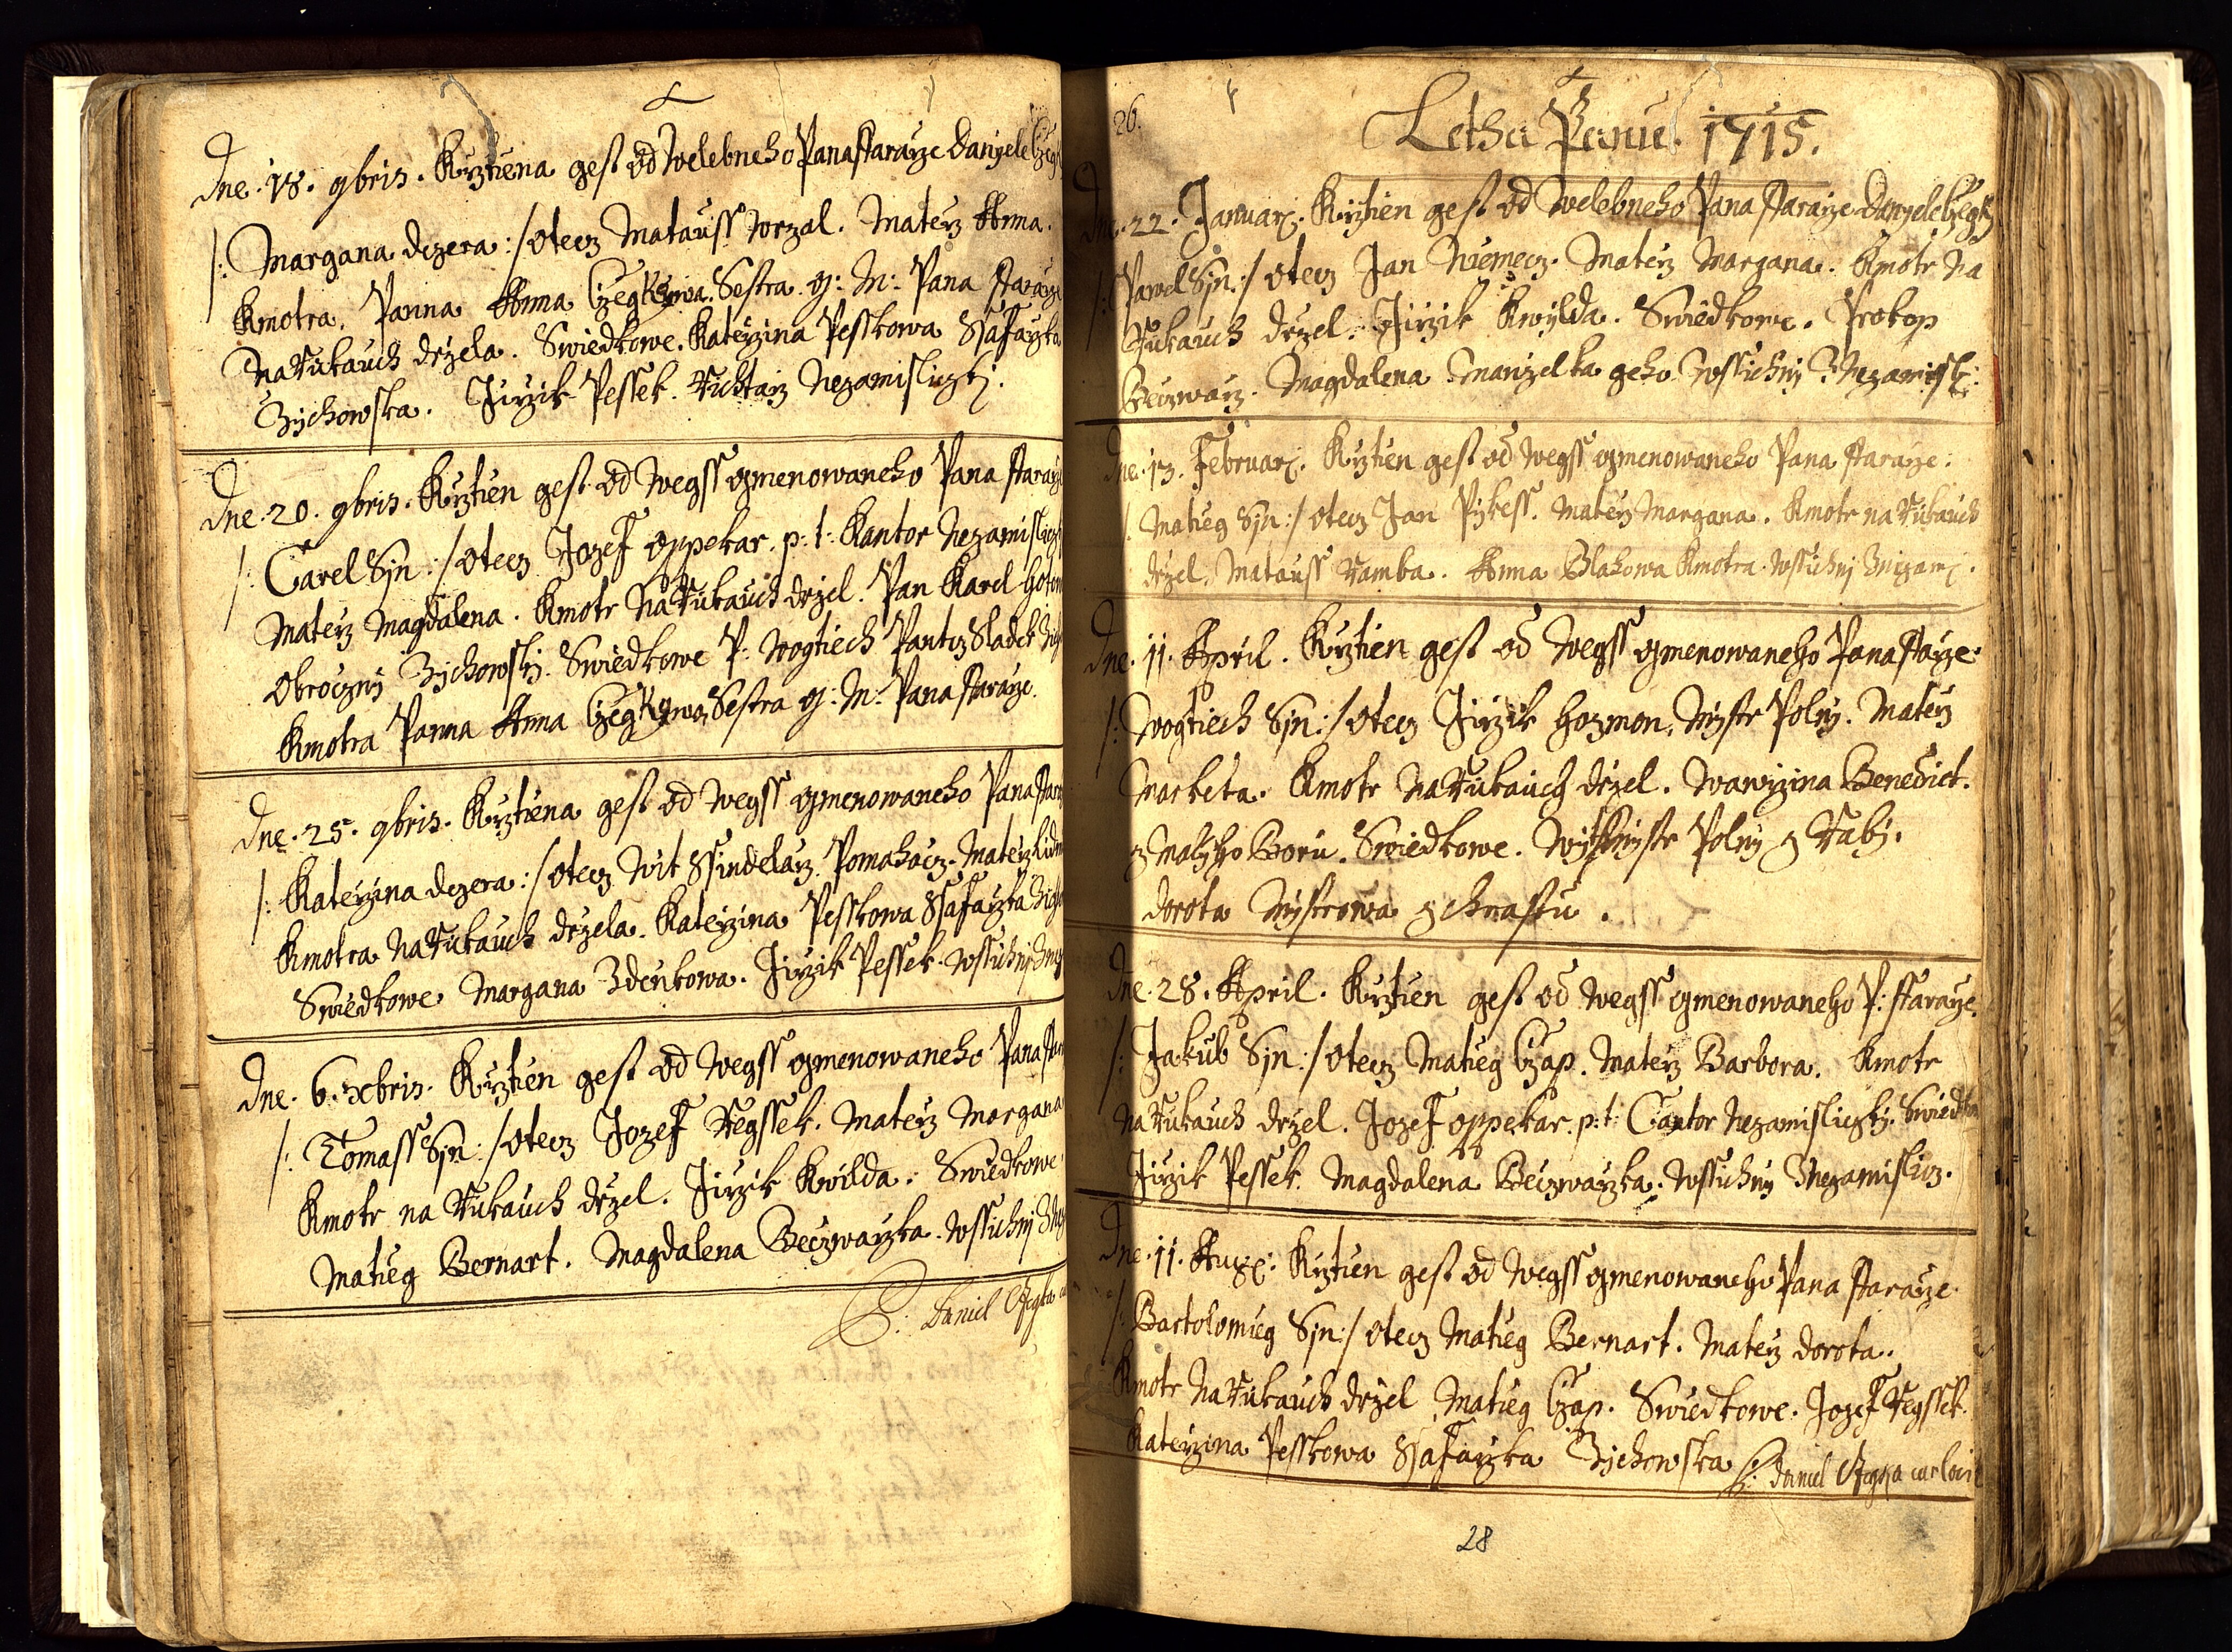 Dne. 18. 9bris. Krztiena gest od Welebneho Pana ffararze Danyele
/: Margana dczera :/ otecz Matauss Wrzal. Materz Anna.
Kmotra. Panna Anna Czegkowa. Sestra g: M: Pana ffararze
Na Rukauch drzela. Swiedkowe. Katerzina Pesskowa Ssafarzka
Zichowska. Jirzik Pessek. Richtarz Nezamisliczkj.
Dne. 20. 9bris. Krztien gest od wegss gmenowaneho Pana ffararze
/: Carel Syn :/ otecz Jozeff Oppekar. p: t: Kantor Nezamisliczkj
Materz Magdalena. Kmotr Na Rukauch drzel. Pan Karel
Obroczny Zichowsky. Swiedkowe P: Wogtiech Sladek
Kmotra Panna Anna Czegkowa Sestra g: M: Pana ffararze.
Dne. 25. 9bris. Krztiena gest od wegss gmenowaneho Pana
/: Katerzina dczera :/ otecz Wit Ssindelarz. Pomahacz. Materz
Kmotra Na Rukauch drzela. Katerzina Pesskowa Ssafarzka
Swiedkowe Margana Zdenkowa. Jirzik Pessek. Wssichnj
Dne. 6. Xbris. Krztien gest od wegss gmenowaneho Pana
/: Tomass Syn :/ otecz Jozeff Regssek. Materz Margana
Kmotr na Rukauch drzel. Jirzik Kwilda. Swiedkowe
Matieg Bernart. Magdalena Beczwarzka. Wssichnj
Daniel
26.
Letha Panie. 1715.
Dne. 22. Januarj. Krztien gest od Welebneho Pana ffararze Danyele
/: Pawel Syn :/ otecz Jan Niemecz. Materz Margana. Kmotr Na
Rukauch drzel. Jirzik Kwylda. Swiedkowe. Prokop
Beczwarz. Magdalena Manzelka geho Wssichnj Znezamisl:
Dne. 13. Februarj. Krztien gest od wegss gmenowaneho Pana ffararze.
/: Matieg Syn :/ otecz Jan Pykess. Materz Margana. Kmotr na Rukauch
drzel. Matauss Ramba. Anna Blahowa Kmotra. Wssichnj
Dne. 11. April. Krztien gest od wegss gmenowaneho Pana ffarze
/: Wogtiech Syn :/ otecz Jirzik Hozmon. Mystr Polny. Materz
Marketa. Kmotr Na Rukauch drzel. Wawrzina Benedict.
z Malyho Boru. Swiedkowe. Wit Mystr Polny z Raby.
Dorota Mystrowa z Chnastu.
Dne. 28. April. Krztien gest od wegss gmenowaneho P: ffararze.
/: Jakub Syn :/ otecz Matieg Czap. Materz Barbora. Kmotr
na Rukauch drzel. Jozeff Oppekar. p: t: Cantor Nezamisliczkj. Swiedkowe
Jirzik Pessek. Magdalena Beczwarzka. Wssichnj Znezamislicz.
Dne. 11. Aug: Krztien gest od wegss gmenowaneho Pana ffararze.
/: Bartolomieg Syn :/ otecz Matieg Bernart. Materz Dorota.
Kmotr Na Rukauch drzel Matieg Czap. Swiedkowe. Jozeff Regssek.
Katerzina Pesskowa Ssafarzka Zichowska Daniel
28